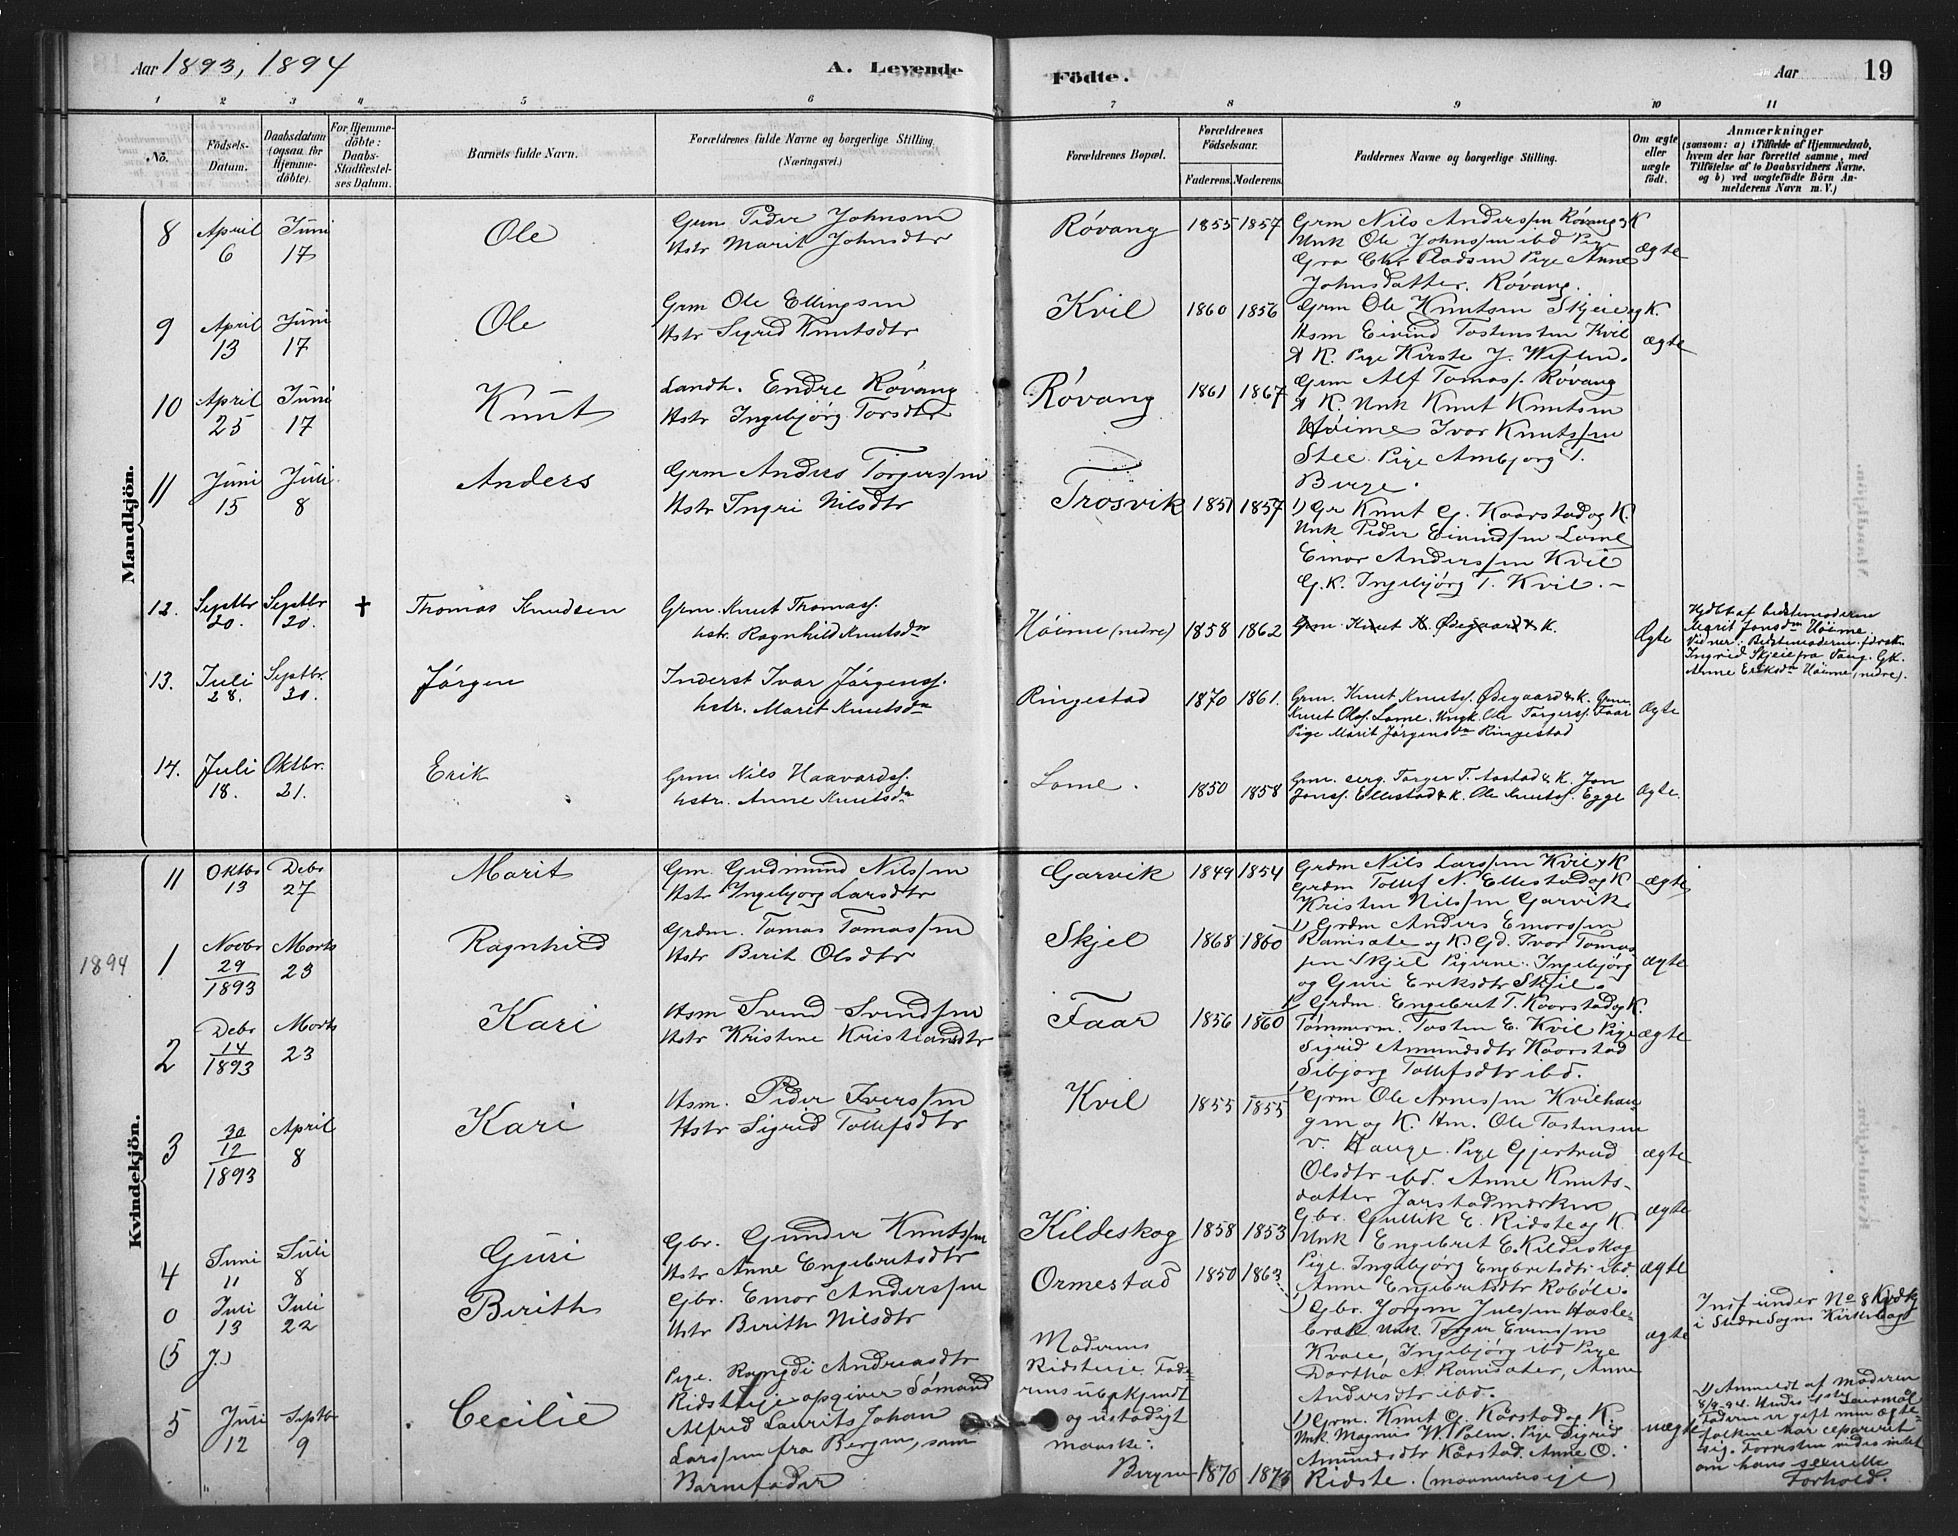 Aar 1893, 1894
A. Levende
Födte.
Aar
19
1 2 3 4 5 6 7 8 9 10 11
No.
Födsels-
Datum.
Daabsdatum
(ogsaa for
Hjemme-
döbte).
For Hjemme-
döbte:
Daabs-
Stadfæstel-
ses Datum.
Barnets fulde Navn.
Forældrenes fulde Navne og borgerlige Stilling.
(Næringsvei.)
Forældrenes Bopæl.
Forældrenes
Födselsaar.
Faderens. Moderens.
Faddernes Navne og borgerlige Stilling.
Om ægte
eller
uægte
födt.
Anmærkninger
(saasom: a) i Tilfælde af Hjemmedaab,
hvem der har forrettet samme, med
Tilföielse af to Daabsvidners Navne.
og b) ved uægtefödte Börn An-
melderens Navn m. V.)
Mandkjön.
8
April
6
Juni
17
Ole
Grm Peder Johnsen
Hstr Marit Johnsdtr
Røvang
1855 1857
Grm Nils Anderssen Røvang & K
Unk Ole Johnssen ibd Pige
Gro Chr Pladsen Pige Anne
Johnsdatter. Røvang.
ægte
9
April
13
Juni
17
Ole
Grm Ole Ellingsen
Hstr Sigrid Knutsdtr
Kvil
1860 1856
Grm Ole Knutsen Skjeie og K.
Hsm Eivind Tostensten Kvil
& K. Pige Kirste J.
ægte
10
April
25
Juni
17
Knut
Landh. Endre Røvang
Hstr Ingebjørg Torsdtr
Røvang
1861 1867
Grm Alf Tomass. Røvang
& K. Unk Knut Knutsen
Høime Ivar Knutssen
Stee Pige Ambjørg T.
Berge.
11
Juni
15
Juli
8
Anders
Grm Andres Torgerssen
Hstr Ingri Nilsdtr
Trosvik
1851 1857
1) Gr Knut G. Kaarstad og K.
Unk Peder Eivindssen Lome
Einar Anderssen Kvil
G. K. Ingebjørg T. Kvil. –
12.
Septbr
20.
Septbr
20.
†
Thomas Knudsen
Grm. Knut Thomass.
hstr. Ragnhild Knutsdtr
Høime (nedre)
1858 1862
Grm. Knut K Ødegaard & K.
Ægte
Hjdbt af bedstemoderen
Marit Jonsdtr Høime.
Vidner: Bedstemoderen forsk.
Ingrid Skjeie fra Vang. Gk.
Anne Eriksdtr Høime (nedre).
13.
Juli
28.
Septbr.
30.
Jørgen
Inderst Ivar Jørgenss.
hstr. Marit Knutsdtr
Ringestad
1870 1861.
Grm. Knut Knutss. Ødegaard & K. Grm.
Knut Olss. Lome. Ungk. Ole Torgerss. Faar
Pige Marit Jørgensdtr Ringestad
Ægte
14.
Juli
18.
Oktbr.
21.
Erik
Grm. Nils Haavardss.
hstr. Anne Knutsdtr
Lome.
1850 1858
Grm. serg. Torger T. Aastad & K. Jon
Jonss. Ellestad & K. Ole Knutss. Egge
Ægte.
Kvindekjön.
11
Oktbr
13
Debr
27
Marit
Gm. Gudmund Nilssen
Hstr Ingebjørg Larsdtr
Garvik
1849 1854
Grdm Nils Larssen Kvil & K
Grdm Tollef N. Ellestad og K
Kristen Nilssen Garvik
ægte
1894
1
Novbr
29
1893
Marts
23
Ragnhild
Grdm. Tomas Tomassen
Hstr Berit Olsdtr
Skjel
1868 1860
1) Grdm Anders Emorssen
Ramsøte og K. Gd. Ivar Tomas
sen Skjel Pigerne. Ingebjørg
og Guri Eriksdtr Skjel.
ægte
2
Debr
14
1893
Marts
23
Kari
Hsm Svend Svendsen
Hstr Kristine Kristiansdtr
Faar
1856 1860
1) Grdm. Engebret T. Kaarstad og K.
Tømmerm. Tosten E. Kvil Pige
Sigrid Amundsdtr Kaarstad
Sibjørg Tollefsdtr ibd.
ægte
3
30
12
1893
April
8
Kari
Hsm. Peder Iverssen
Hstr Sigrid Tollefsdtr
Kvil
1855 1855
1) Grm Ole Arnessen Kvilhau-
gen og K. Hm. Ole Tostensen
v. Hauge. Pige Gjertrud
Olsdtr ibd. Anne Knuts-
datter Jarstadmærken
ægte
ægte
4
Juni
11
Juli
8
Guri
Gbr. Gunder Knutssen
Hstr Anne Engebretsdtr
Kildeskog
1858 1853
Gbr. Gullik E. Ridste og K
Unk Engebret E. Kildeskog
Pige. Ingebjørg Engbretsdtr ibd.
Anne Engebretsdtr Robøle.
ægte
0
Juli
13
Juli
22
Berith
Gbr. Emor Anderssen
Hstr Berith Nilsdtr
Ormestad
1850 1863
1) Gbr. Jørgen Julssen Hasle-
bræk. Unk. Torger Evenssen
Kvale, Ingebjørg ibd Pige
Dorthø A. Ramsøter, Anne
Andersdtr ibd.
ægte
Insf under No 8 Kvdkj
i Slidre Sogns Kirkebog
(5 J.)
5
Juli
12
Septbr
9
Cecilie
Pige. Rangdi Andreasdtr
Ridsteeie opgiver Sømand
Alfred Laurits Johan
Larssen fra Bergen, som
Barnefader
Moderens
Ridsteeie. Fade-
rens ubekjendt
og ustadigt
maaske:
Bergen
1870 1873
1) Grm. Knut G. Kårstad og K.
Unk. Magnus W. Palm. Pige Sigrid
Amundsdtr Kårstad. Anne O.
Ridste. (moommerseje)
uægte
1) Anmeldt af Moderen
8/9 94. Hendes 1ste Leiermål
Faderen er gift men ægte-
folkene har separeret
sig. Forresten vides intet
om hans sexuelle
Forhold.